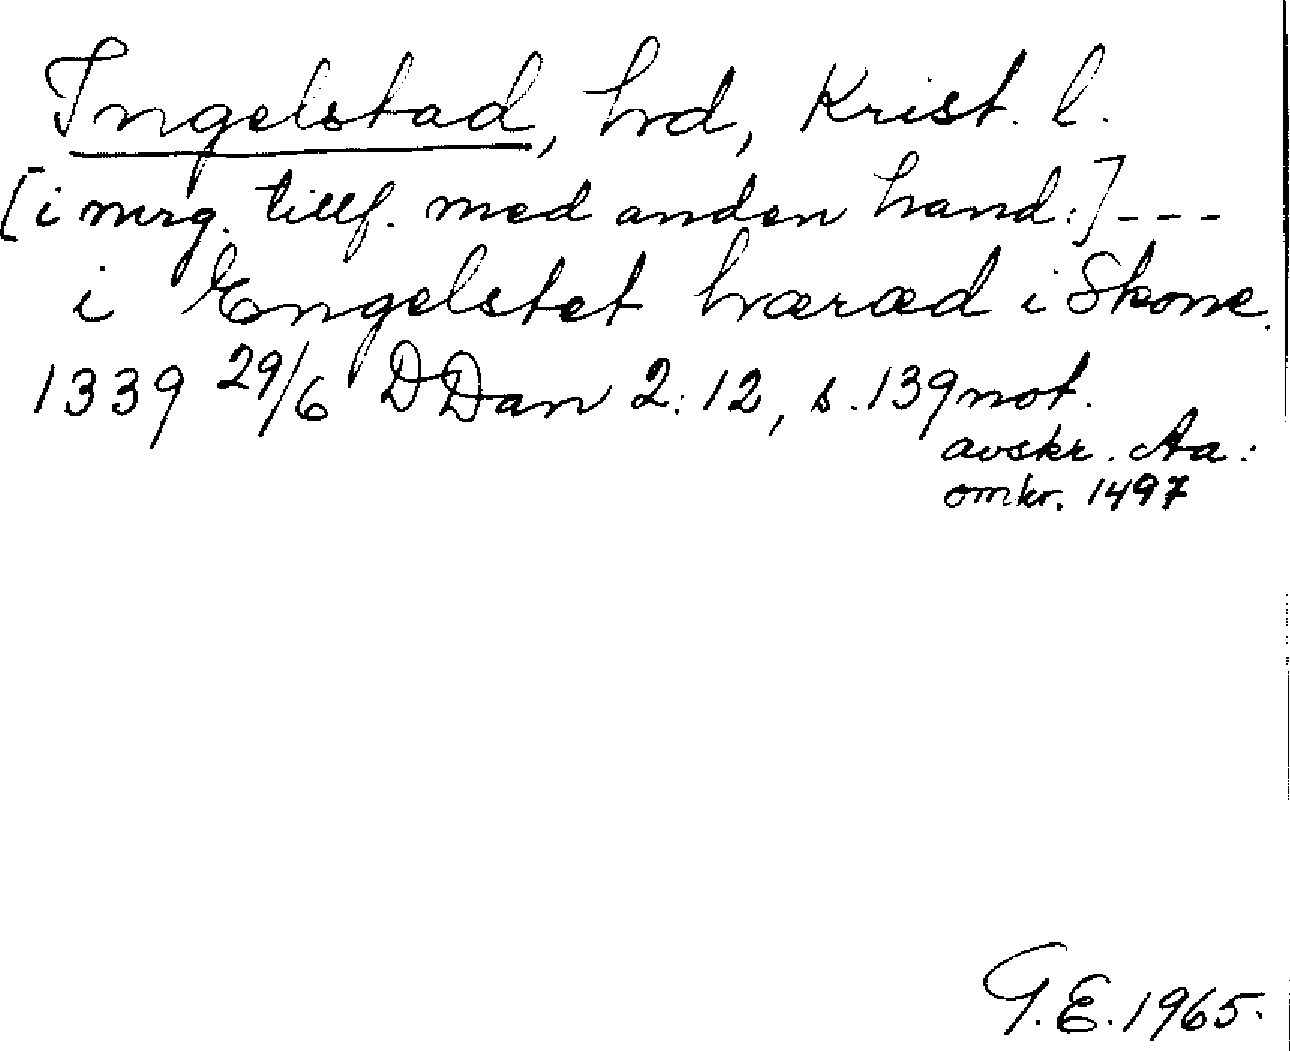 Ingelstad, hrd, Krist. l.
[i mrg. tillf. med anden hand:] ---
i Engelstet hæræd i Skone.
1339 29/6 DDan 2:12, s. 139 not.
avskr. Aa:
omkr. 1497
G.E. 1965.